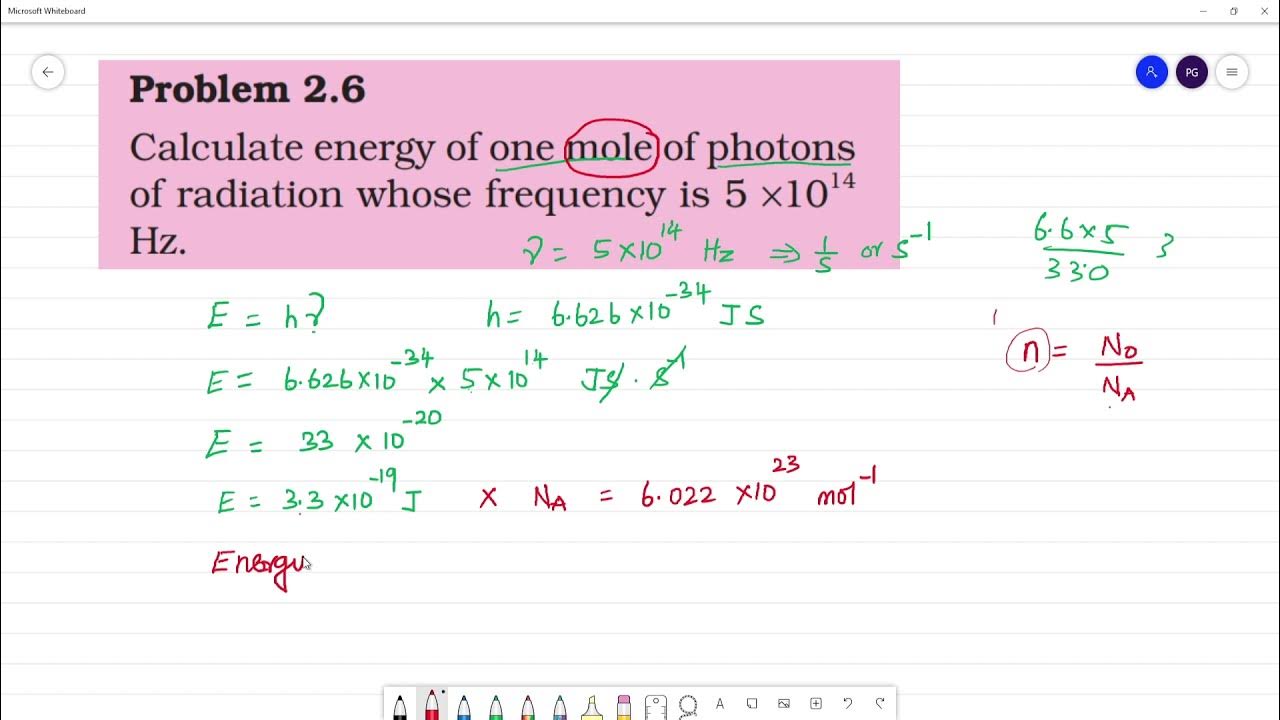 Microsoft Whiteboard
PG
Problem 2.6
Calculate energy of one mole of photons
of radiation whose frequency is 5 ×10¹⁴
Hz.
ν = 5×10¹⁴ Hz ⇒ 1/s or s⁻¹
6.6×5
33.0
3
E = hν
h = 6.626×10⁻³⁴ JS
n = N₀/N_A
E = 6.626×10⁻³⁴ × 5×10¹⁴ JS . S⁻¹
E = 33 ×10⁻²⁰
E = 3.3×10⁻¹⁹ J × N_A = 6.022 ×10²³ mol⁻¹
Energy
A